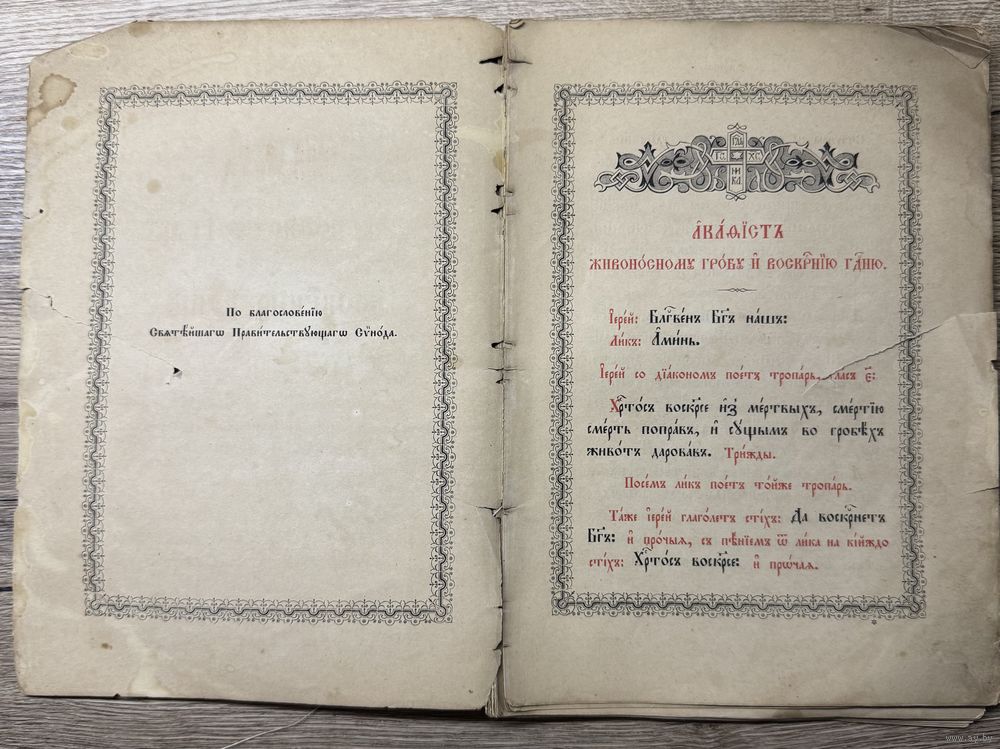 По благослове́нїю
Свѧтѣ́йшагѡ Прави́тельствꙋющагѡ Сѷно́да.
І҃С Х҃С
НИ
КА
А҆ка́ѳїстъ
живоно́сномꙋ гро́бꙋ и҆ воскрⷭ҇нїю гдⷭ҇ню.
І҆ере́й: Блгⷭ҇ве́нъ бг҃ъ на́шъ:
Ли́къ: А҆ми́нь.
І҆ере́й со дїа́кономъ пое́тъ тропа́рь, гласъ є҃:
Хрⷭ҇то́съ воскр҃се и҆з̾ ме́ртвыхъ, сме́ртїю
сме́рть попра́въ, и҆ сꙋ́щымъ во гробѣ́хъ
живо́тъ дарова́въ. Три́жды.
Посе́мъ ли́къ пое́тъ то́йже тропа́рь.
Та́же і҆ере́й глаго́летъ сті́хъ: Да воскрⷭ҇нетъ
бг҃ъ: и҆ про́чыѧ, съ пѣ́нїемъ ѿ ли́ка на кі́йждо
сті́хъ: Хрⷭ҇то́съ воскр҃се: и҆ прѡ́чаѧ.
*
www.ay.by